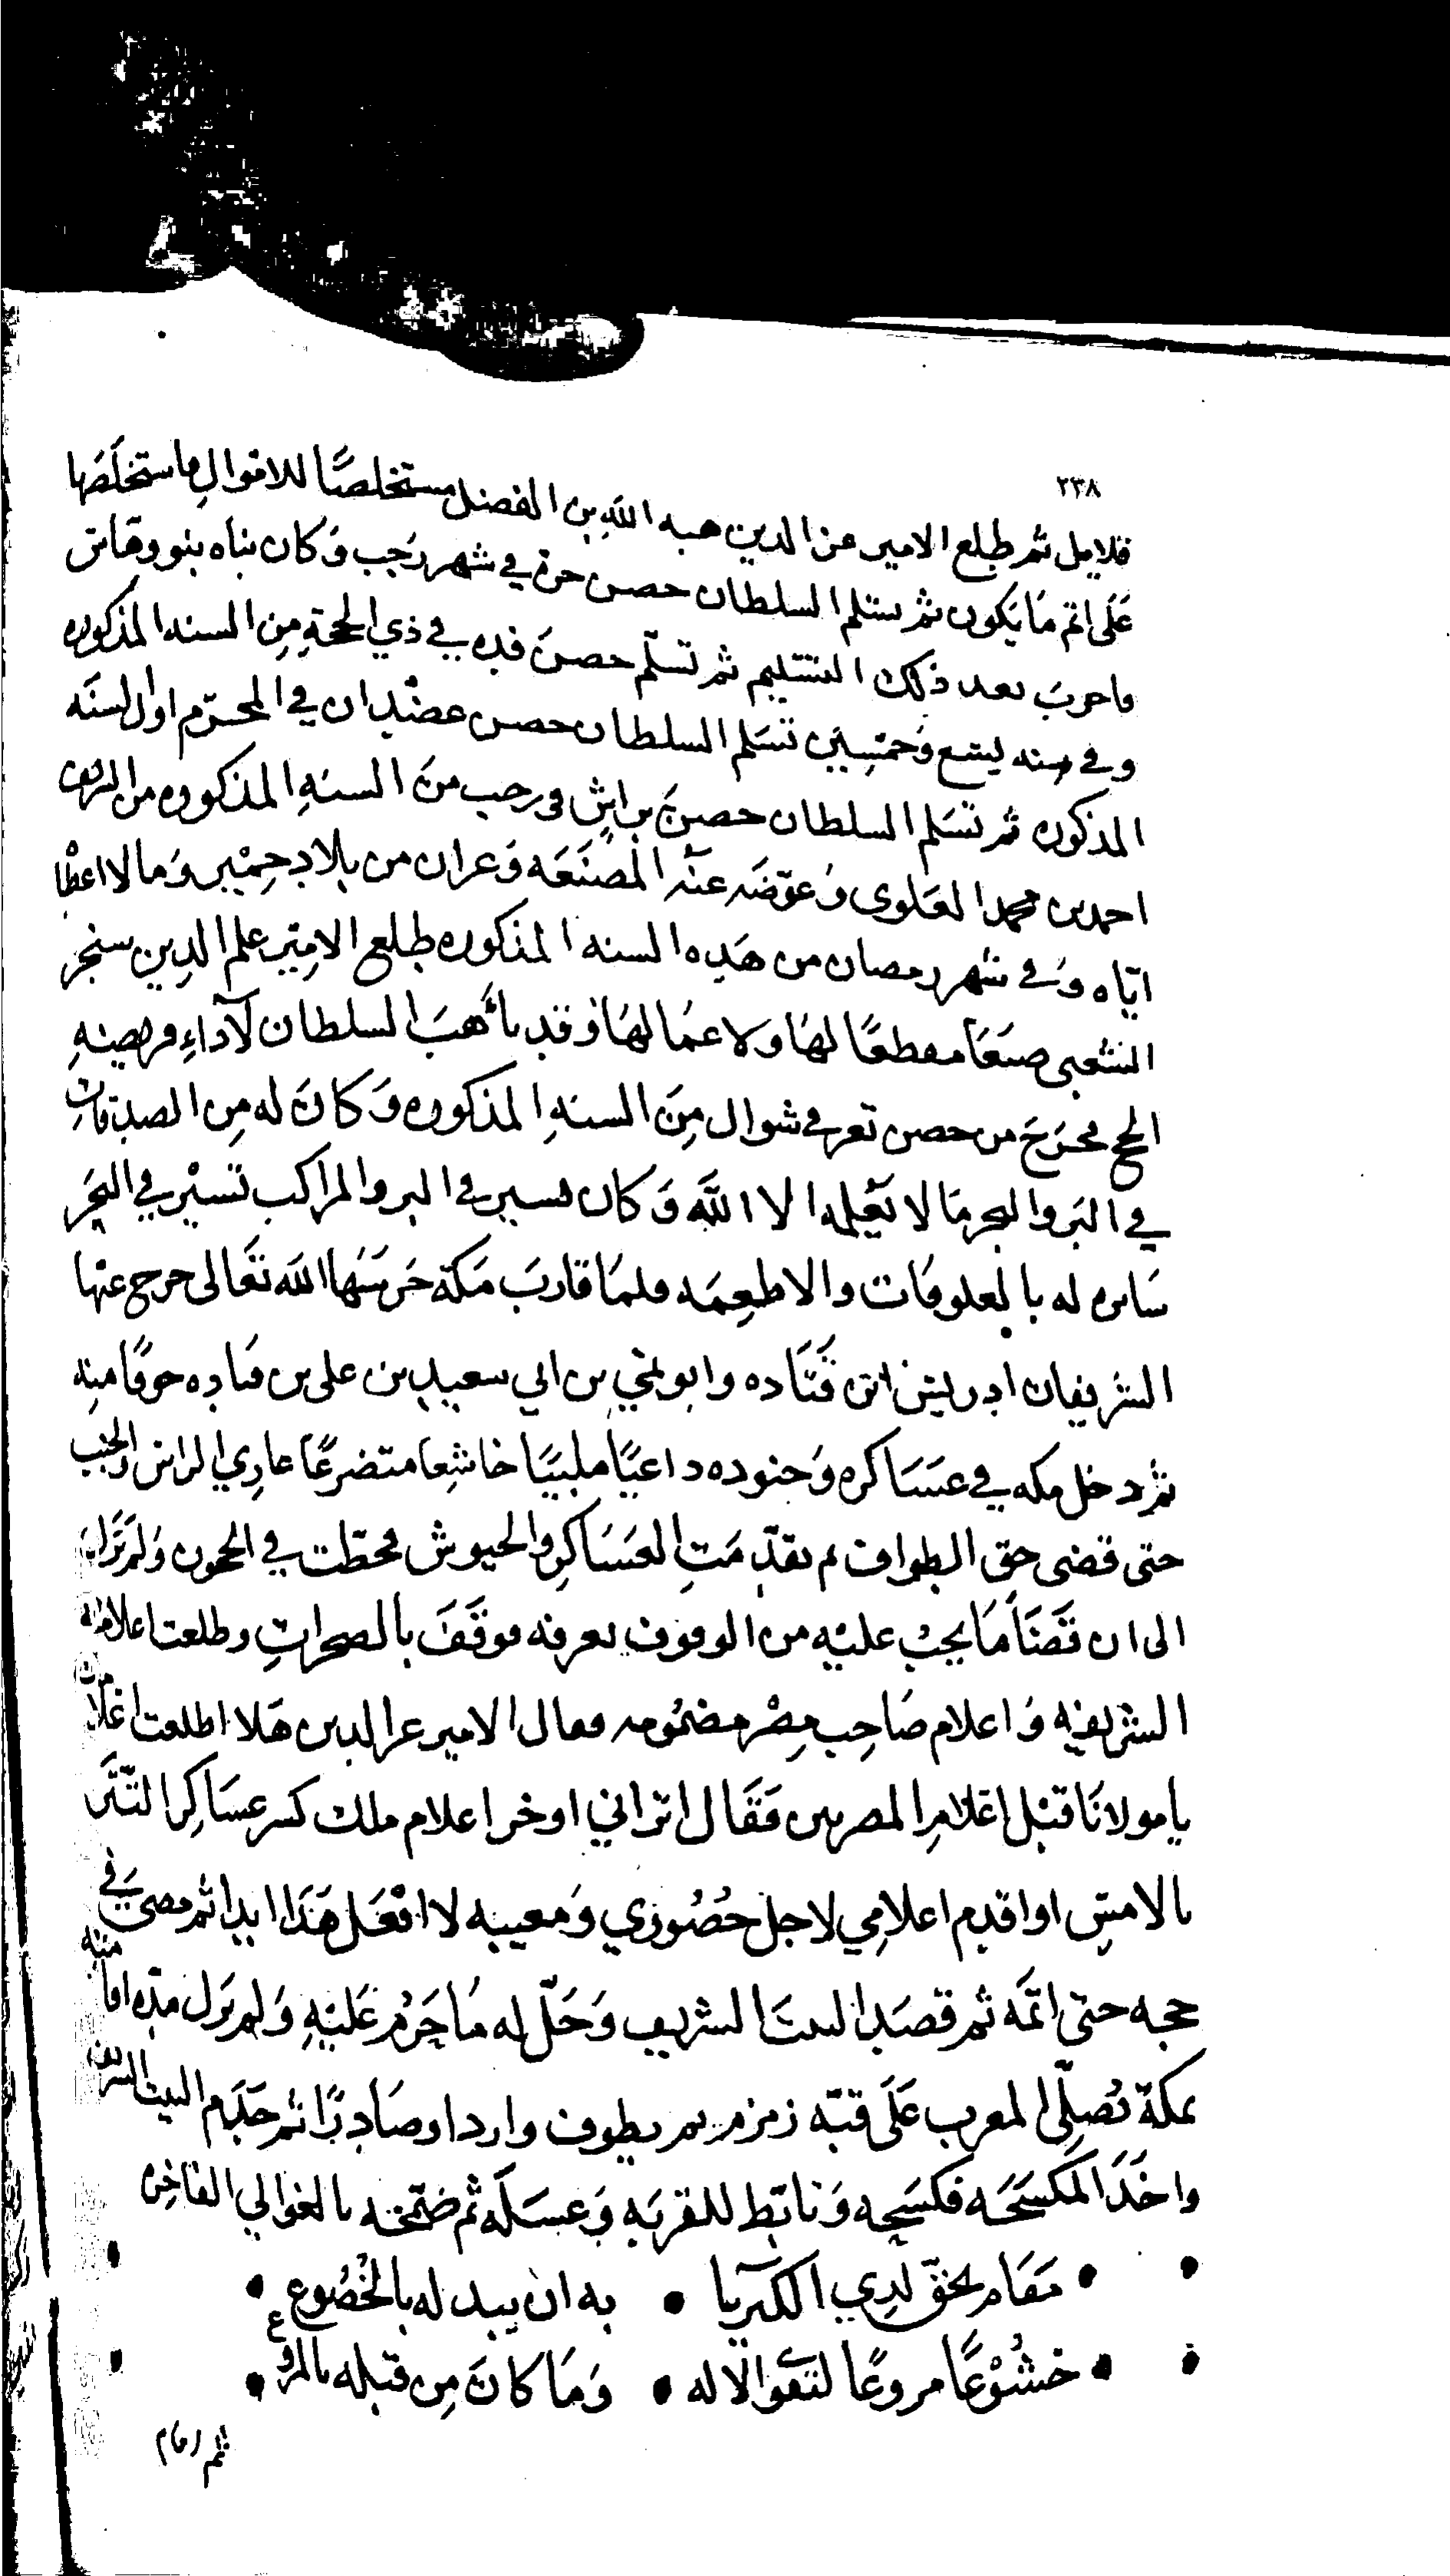 ٢٣٨
قلايل ثم طلع الامير عز الدين هبه الله بن الفضل مستخلصًا للاموال فاستخلصَها
عَلَى اتم مَا يَكون ثم ستلم السلطان حصن حره في شهر رجَب وَكان بناه بنو وهاس
واخربَ بعد ذلك التسَليم ثم تسَلّم حصنَ فده في ذي الحجة مِن السنه المذكوره
وفي سنه تسع وَخمسِين تسَلم السلطان حصن عضْدان في المحرّم اول السنَه
المذكوره ثم تسَلم السلطان حصنَ براش في رجب منَ السنهِ المذكوره من الشريف
احمد بن محمد العَلوى وَعوّضَه عنْه المصْنَعَه وَعزان من بلاد حِمْير وَمالا اعطا
ايّاه وَفي شهر رمضان من هَذه السنه المذكوره طلع الامِير علم الدين سنجر
الشعبى صنعَا مقطعًا لهَا ولاعمَالهَا وَقد تأهّبَ السلطان لآداءِ فريضهِ
الحج فخرَجَ من حصن تعز في شوال مِنَ السنهِ المذكوره وَكانَ له مِن الصدقات
في البَر والبحر مَا لا يَعْلمه الا اللهَ وَكان يسير في البر والمراكب تسيْر في البَحر
سَايره له بالعلوفَات والاطعِمَه فلمَا قاربَ مَكة حَرسَهَا الله تعَالى خرج عنها
الشريفان ادريس ابن قَتَاده وابو نمي بن ابي سعيد بن على بن قتاده خوفًا منه
ثم دخل مكه في عسَاكره وَجنوده داعيًا ملبيَا خاشعا متضرعًا عاري الراس والجنب
حتى قضى حق الطواف ثم تقدّمَتِ العسَاكر والجيوش فحطّت في الحجون وَلم يزَل
الى ان قضَا مَا يجبْ عليْه من الوقوف بعرفه فوقَفَ بالصخراتِ وطلعت اعلامه
الشريفه وَاعلام صَاحِب مِصْر مضمُومه فقال الامير عز الدين هَلا اطلعت اعلامك
يا مولانَا قبْل اعْلامِ المصريين فقَال اتراني اوخر اعلام ملك كسر عسَاكِر التّتَر
بالامسِ اواقدم اعلامِي لاجل حُضُوري وَمغيبه لا افْعَل هَذَا ابدا ثم مضى في
حجه حتى اتمَه ثم قصَد البيتَ الشريف وَحَلّ له مَا حَرُم عَليْهِ وَلم يزَل مدّه اقامته
بمكة يُصلّى المغرب عَلَى قبّه زمزم ثم يطوف واردا وصَادرًا ثم خدَم البيت الشريف
واخَذَ المكسَحَه فكسَحه وَتابّط للقربَه وَغسَلَه ثم ضمّخه بالغوالي الفاخره
• مَقَام يحقّ لدي الكبريا • به ان يبد له بالخُضُوع •
• خشُوْعًا مروعًا لتقوى الاله • وَمَا كانَ مِن قبله بالمروع •
ثم اقام